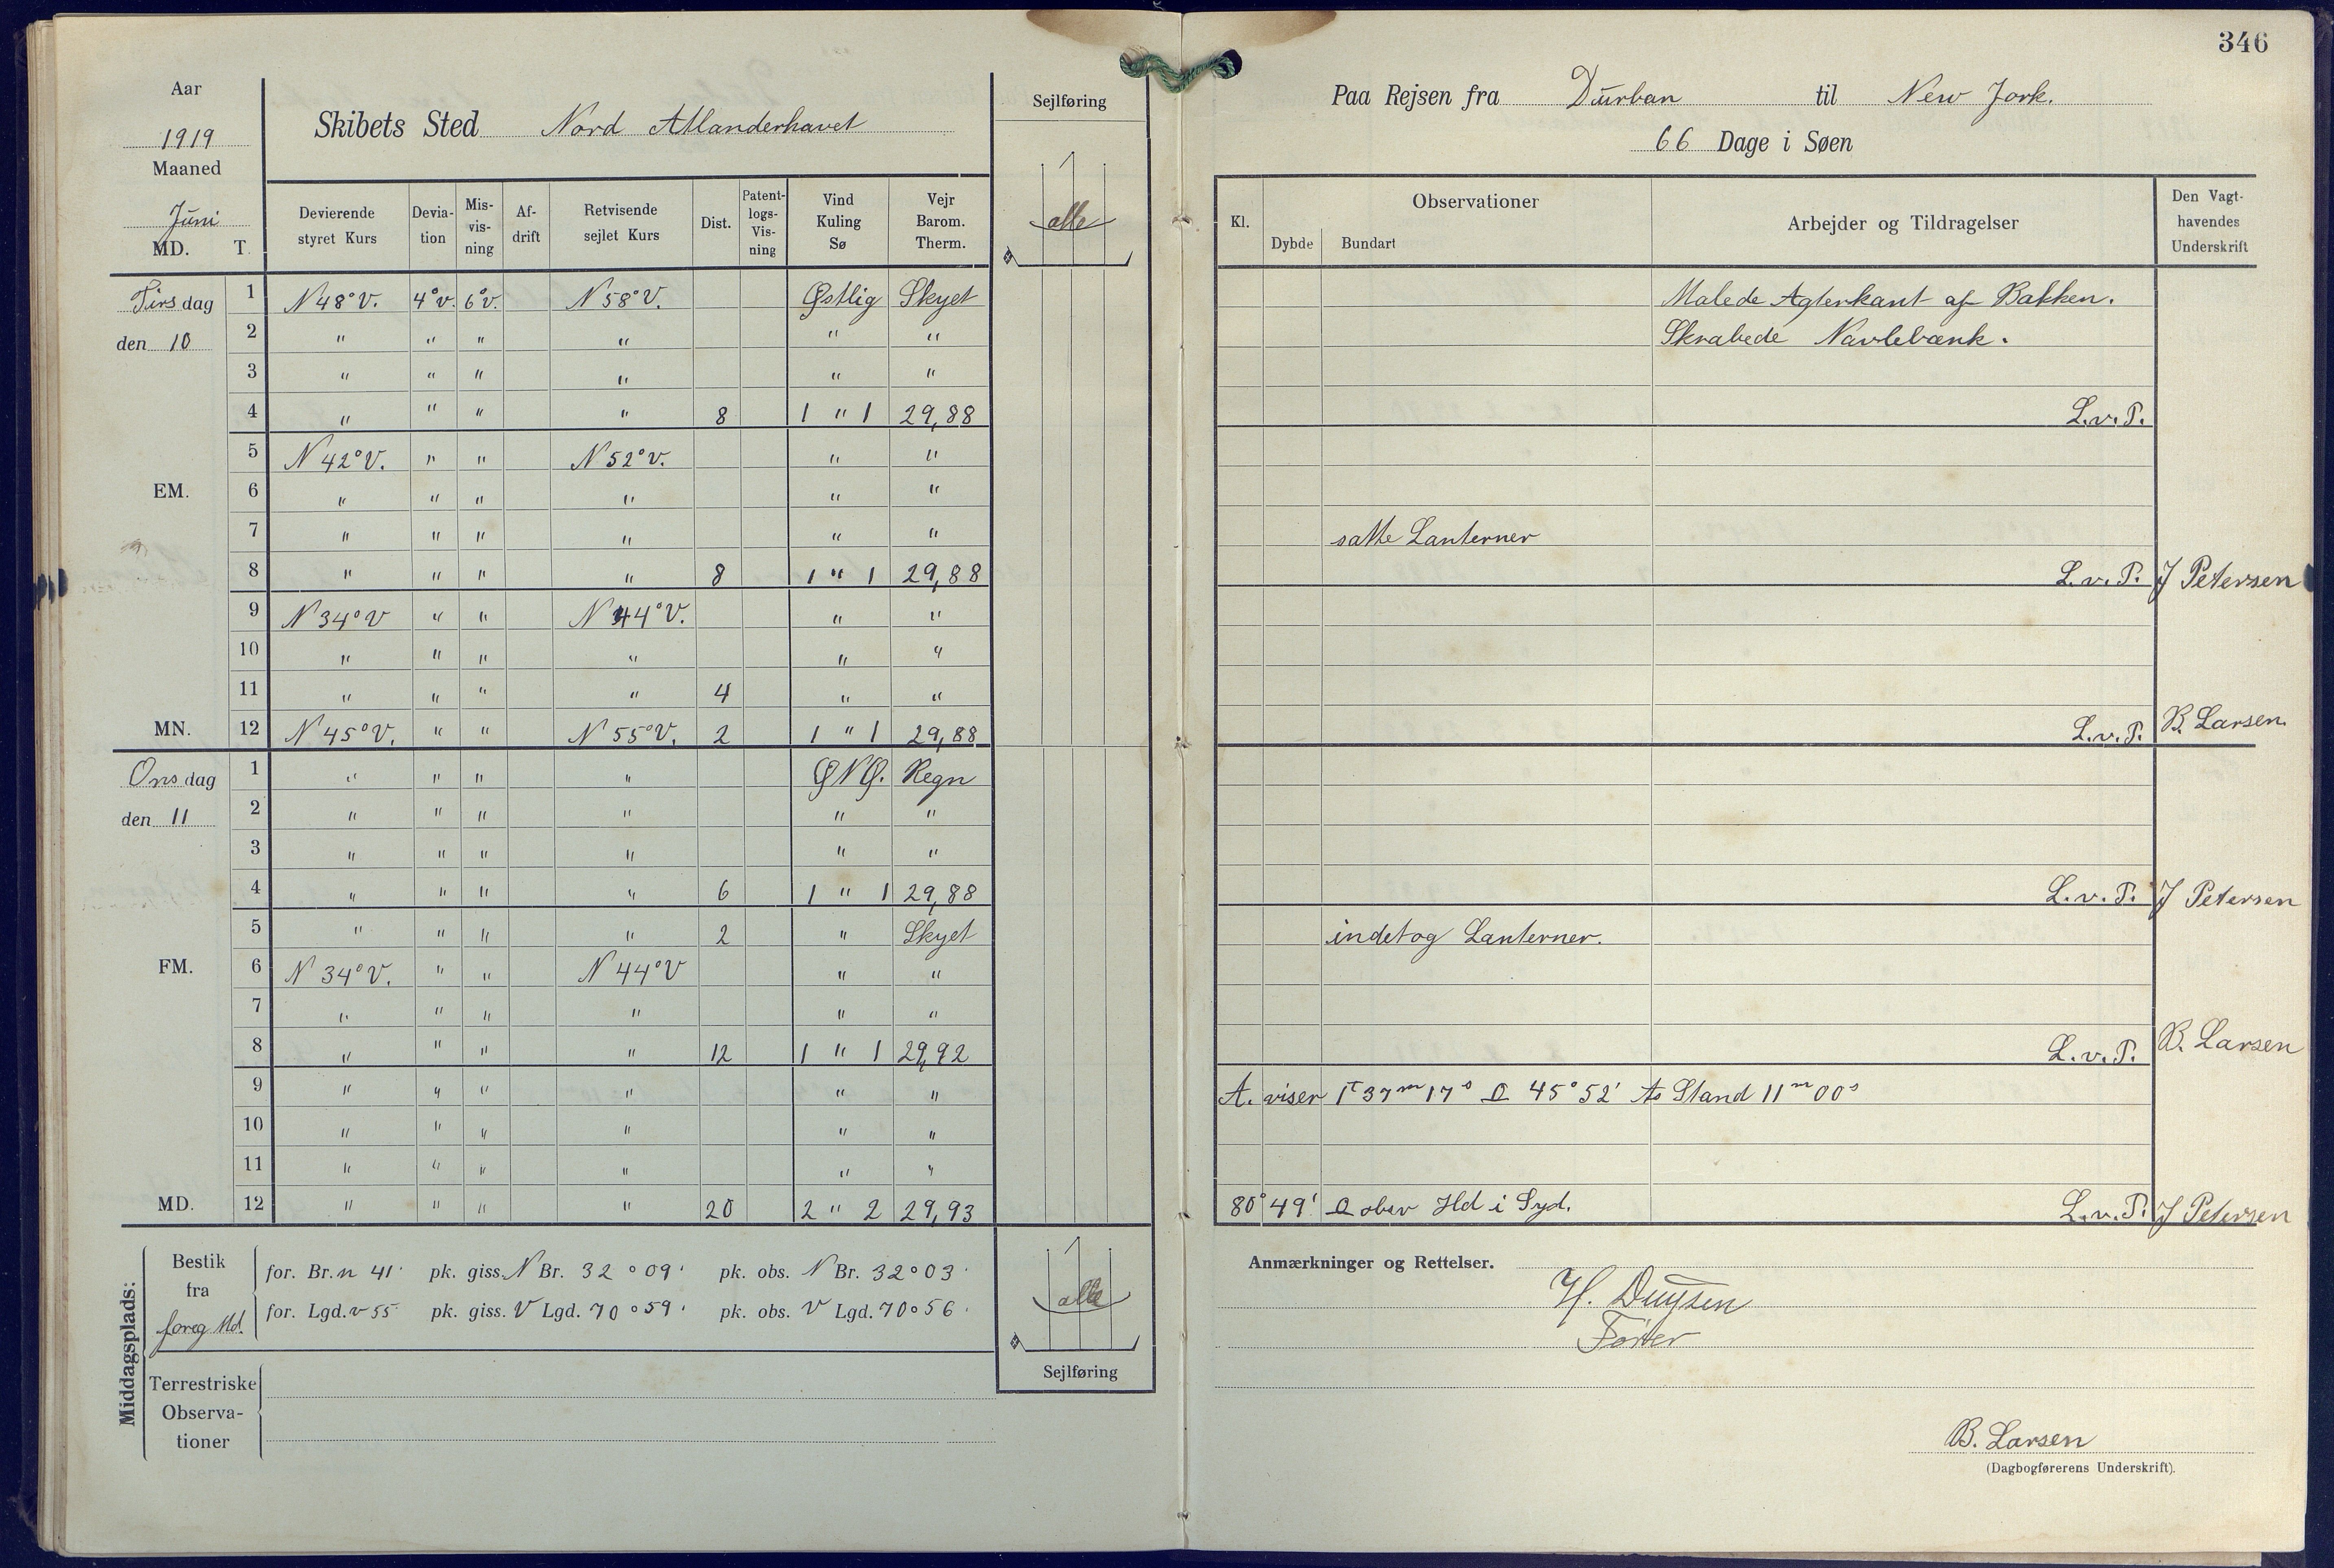 Aar
1919
Maaned
Juni
MD. T.
Skibets Sted Nord Atlanderhavet
Sejlføring
alle
Devierende styret Kurs | Deviation | Misvisning | Afdrift | Retvisende sejlet Kurs | Dist. | Patentlogs-Visning | Vind Kuling Sø | Vejr Barom. Therm.
Tirsdag 1 N 48° V. 4° v. 6° v. N 58° V. Østlig Skyet
den 10 2 " " " " " "
3 " " " " " "
4 " " " " 8 1 " 1 29,88
5 N 42° V. " " N 52° V. " "
EM. 6 " " " " " "
7 " " " " " "
8 " " " " 8 1 " 1 29,88
9 N 34° V " " N 44° V. " "
10 " " " " " "
11 " " " " 4 " "
MN. 12 N 45° V. " " N 55° V. 2 1 " 1 29,88
Onsdag 1 " " " " ØNØ. Regn
den 11 2 " " " " " "
3 " " " " " "
4 " " " " 6 1 " 1 29,88
5 " " " " 2 " Skyet
FM. 6 N 34° V. " " N 44° V " "
7 " " " " " "
8 " " " " 12 1 " 1 29,92
9 " " " " " "
10 " " " " " "
11 " " " " " "
MD. 12 " " " " 20 2 " 2 29,93
Middagsplads:
Bestik fra foreg Md.
for. Br. n 41' pk. giss. N Br. 32° 09' pk. obs. N Br. 32° 03'
for. Lgd. v 55 pk. giss. V Lgd. 70° 59' pk. obs. V Lgd. 70° 56'
Terrestriske Observationer
alle
Sejlføring
346
Paa Rejsen fra Durban til New Jork.
66 Dage i Søen
Kl. | Observationer | Dybde | Bundart | Arbejder og Tildragelser | Den Vagthavendes Underskrift
Malede Agterkant af Bakken.
Skrabede Navlebænk.
L.v.P.
satte Lanterner
L.v.P. J Petersen
L.v.P. B. Larsen.
L.v.P. J Petersen
indetog Lanterner.
L.v.P. B. Larsen
A. viser 1t 37m 17s 45° 52' As Stand 11m 00s
80° 49' obsv Hd i Syd. L.v.P. J Petersen
Anmærkninger og Rettelser.
H. Duysen
Fører
B. Larsen
(Dagbogførerens Underskrift).